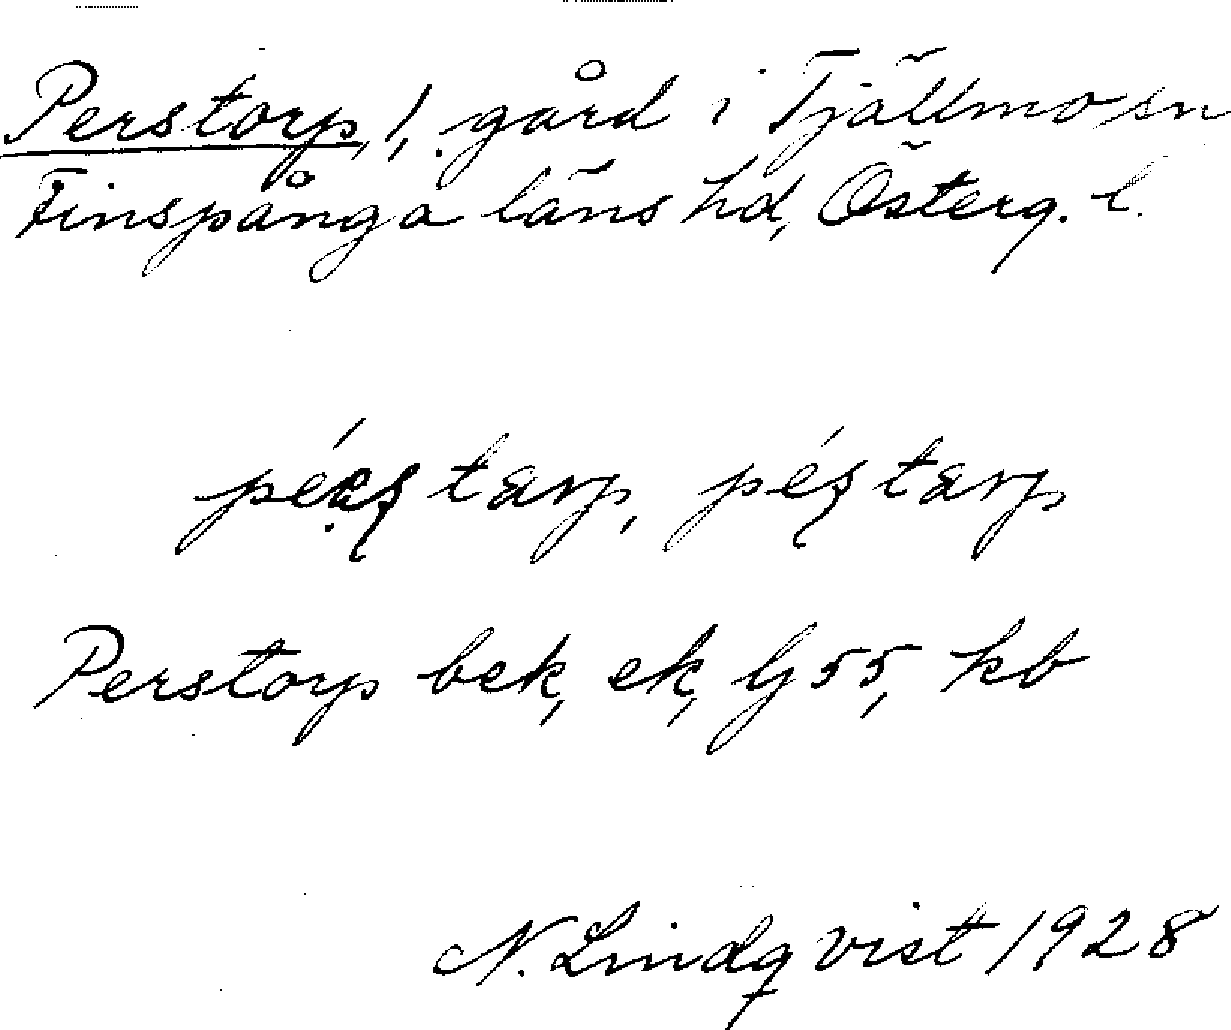 Perstorp, 1, gård i Tjällmo sn
Finspånga läns hd, Österg. l.
Perstorp bek, ek, Gj 55, kb
N. Lindqvist 1928